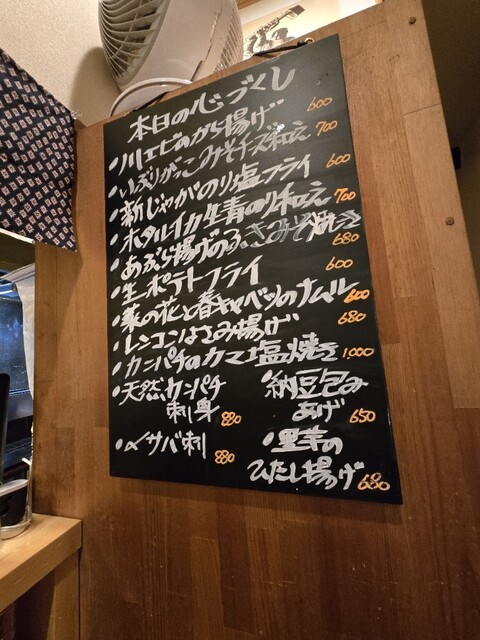 本日の心づくし
・川エビのから揚げ 600
・いぶりがっこみそチーズ和え 700
・新じゃがのり塩フライ 600
・ホタルイカ生青のり和え 700
・あぶら揚げのふきみそ焼き 680
・生ポテトフライ 600
・菜の花と春キャベツのナムル 600
・レンコンはさみ揚げ 680
・カンパチのカマ塩焼き 1,000
・天然カンパチ
刺身 880
・〆サバ刺 880
・納豆包み
あげ 650
・里芋の
ひたし揚げ 680